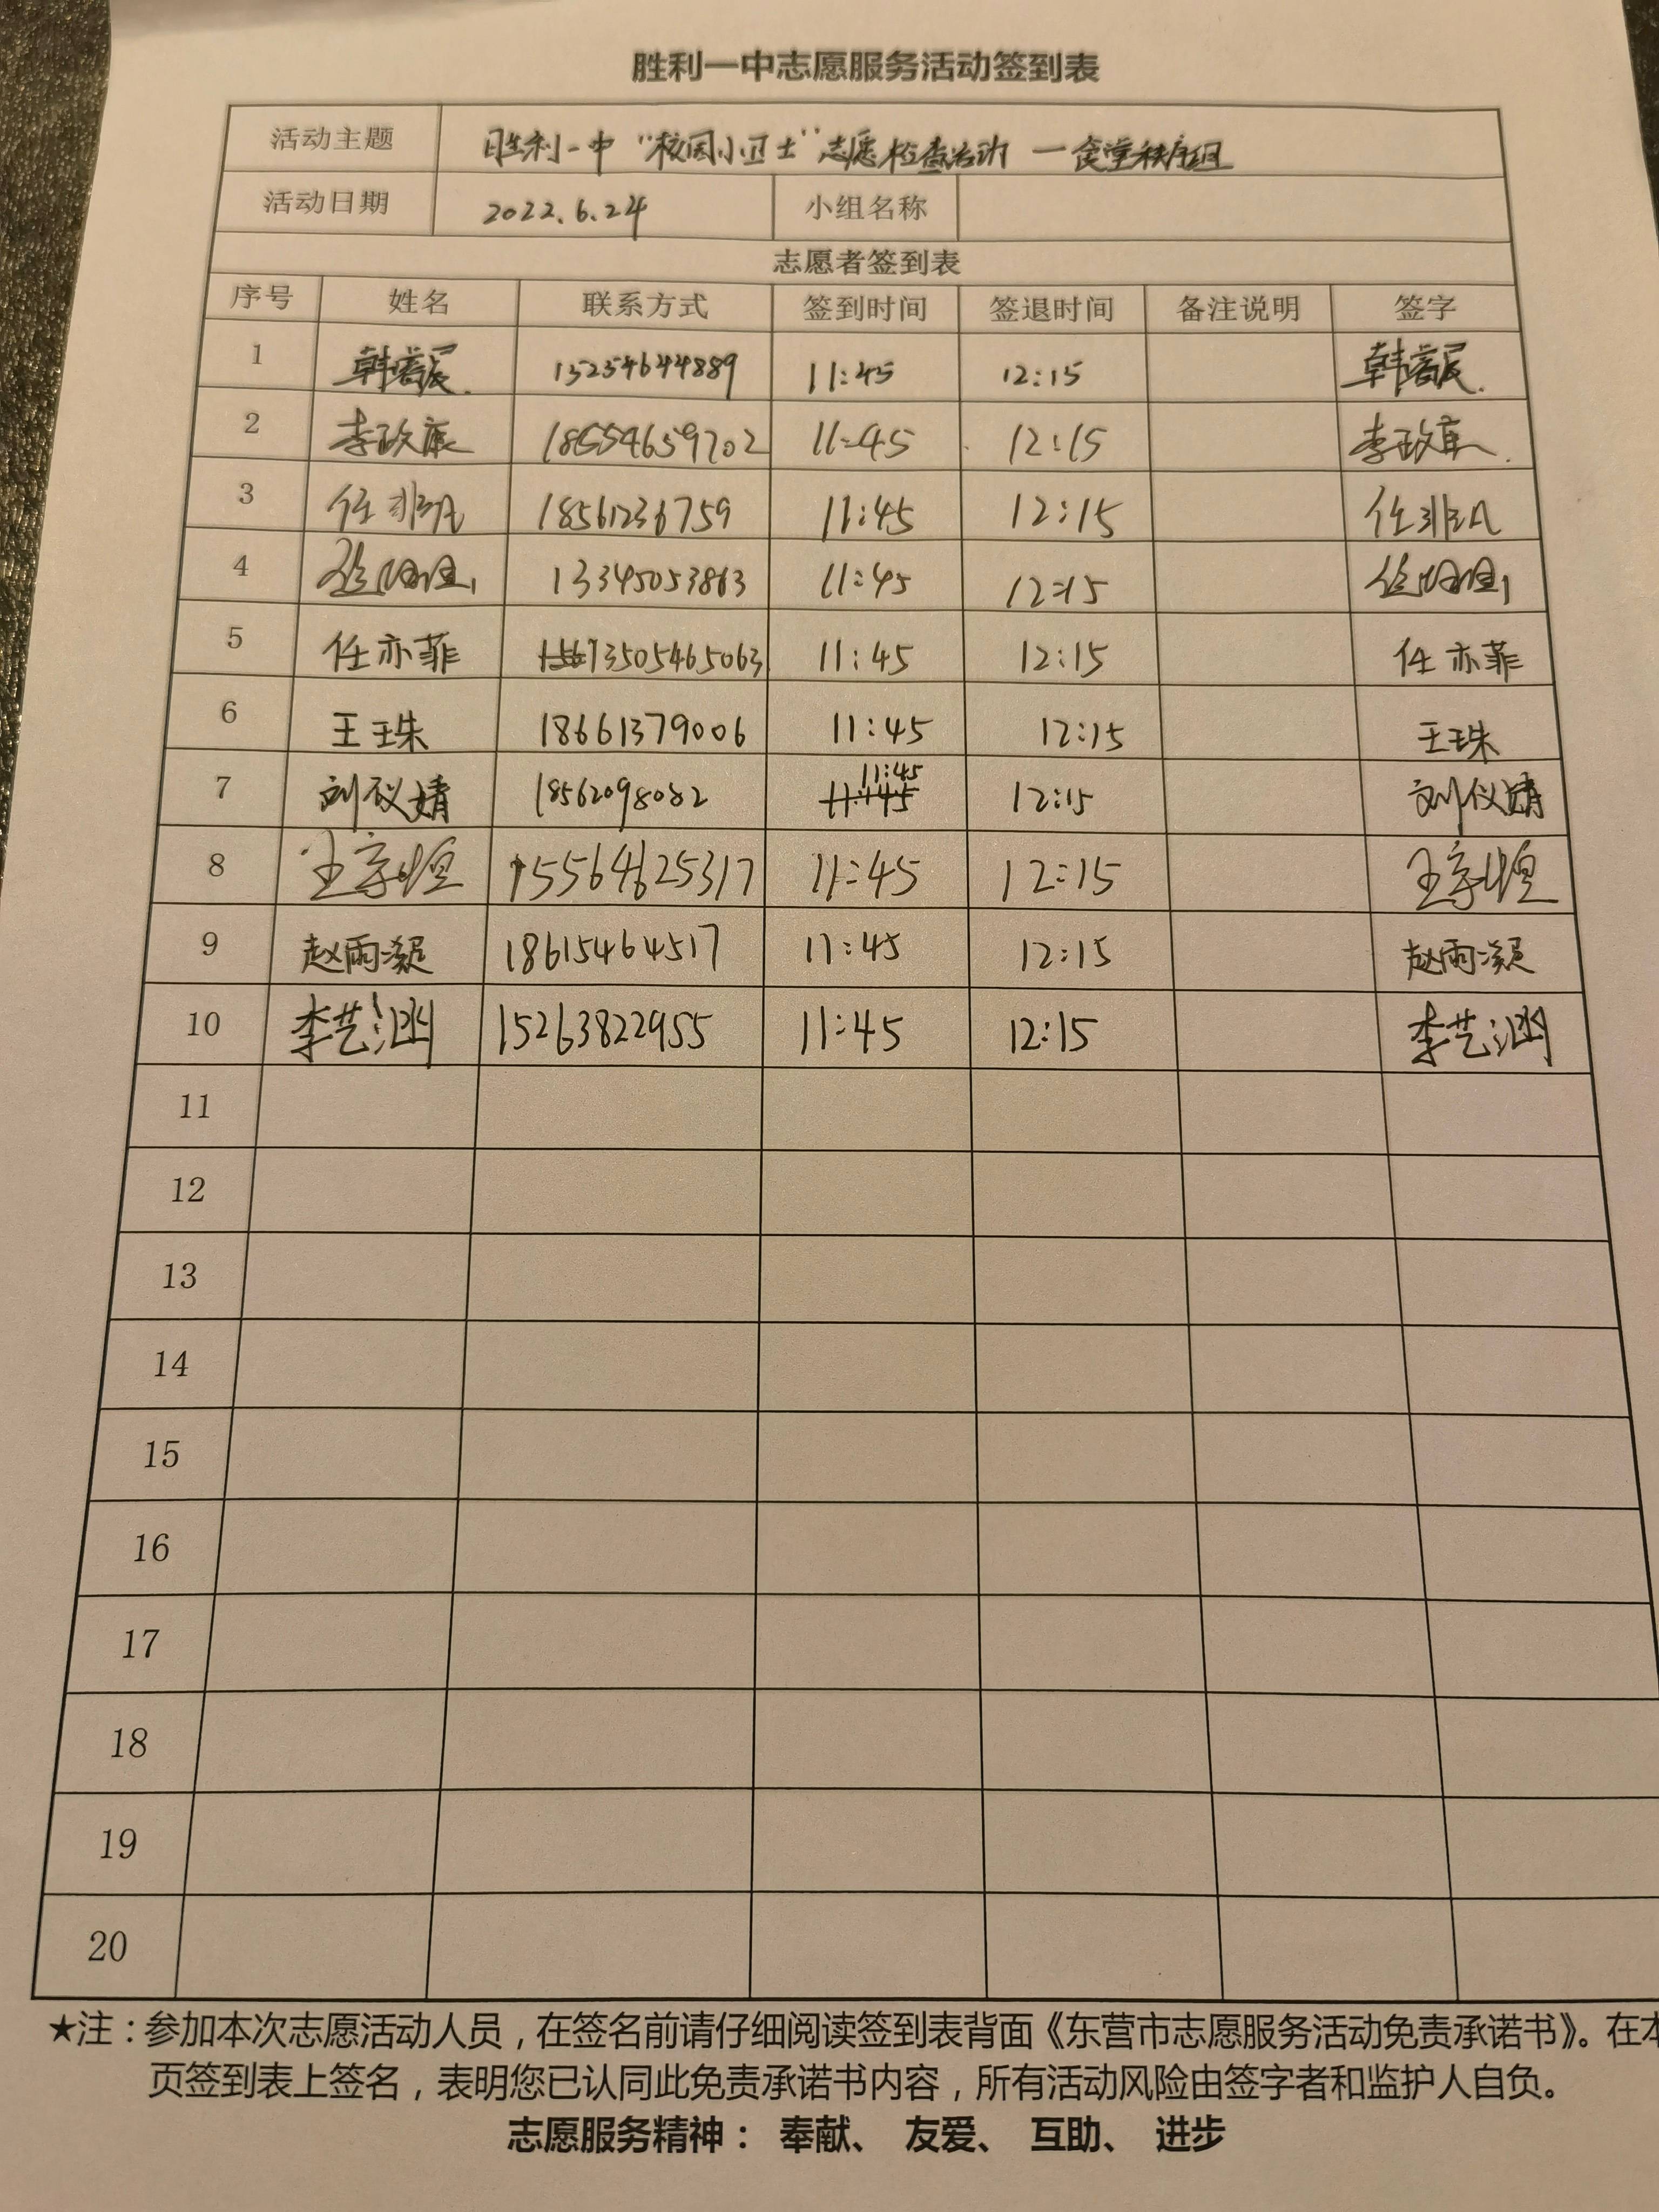 胜利一中志愿服务活动签到表
活动主题 胜利一中“校园小卫士”志愿检查活动 一食堂秩序组
活动日期 2022.6.24 小组名称
志愿者签到表
序号 姓名 联系方式 签到时间 签退时间 备注说明 签字
1 15254644889 11:45 12:15
2 18554659702 11:45 12:15
3 任非凡 18561236759 11:45 12:15 任非凡
4 13345053863 11:45 12:15
5 任亦菲 13505465063 11:45 12:15 任亦菲
6 王珏 18661379006 11:45 12:15
7 刘仪婧 18562098082 11:45 12:15 刘仪婧
8 15564625317 11:45 12:15
9 赵雨凝 18615464517 11:45 12:15 赵雨凝
10 李艺涵 15263822955 11:45 12:15 李艺涵
11
12
13
14
15
16
17
18
19
20
★注：参加本次志愿活动人员，在签名前请仔细阅读签到表背面《东营市志愿服务活动免责承诺书》。在本
页签到表上签名，表明您已认同此免责承诺书内容，所有活动风险由签字者和监护人自负。
志愿服务精神： 奉献、 友爱、 互助、 进步